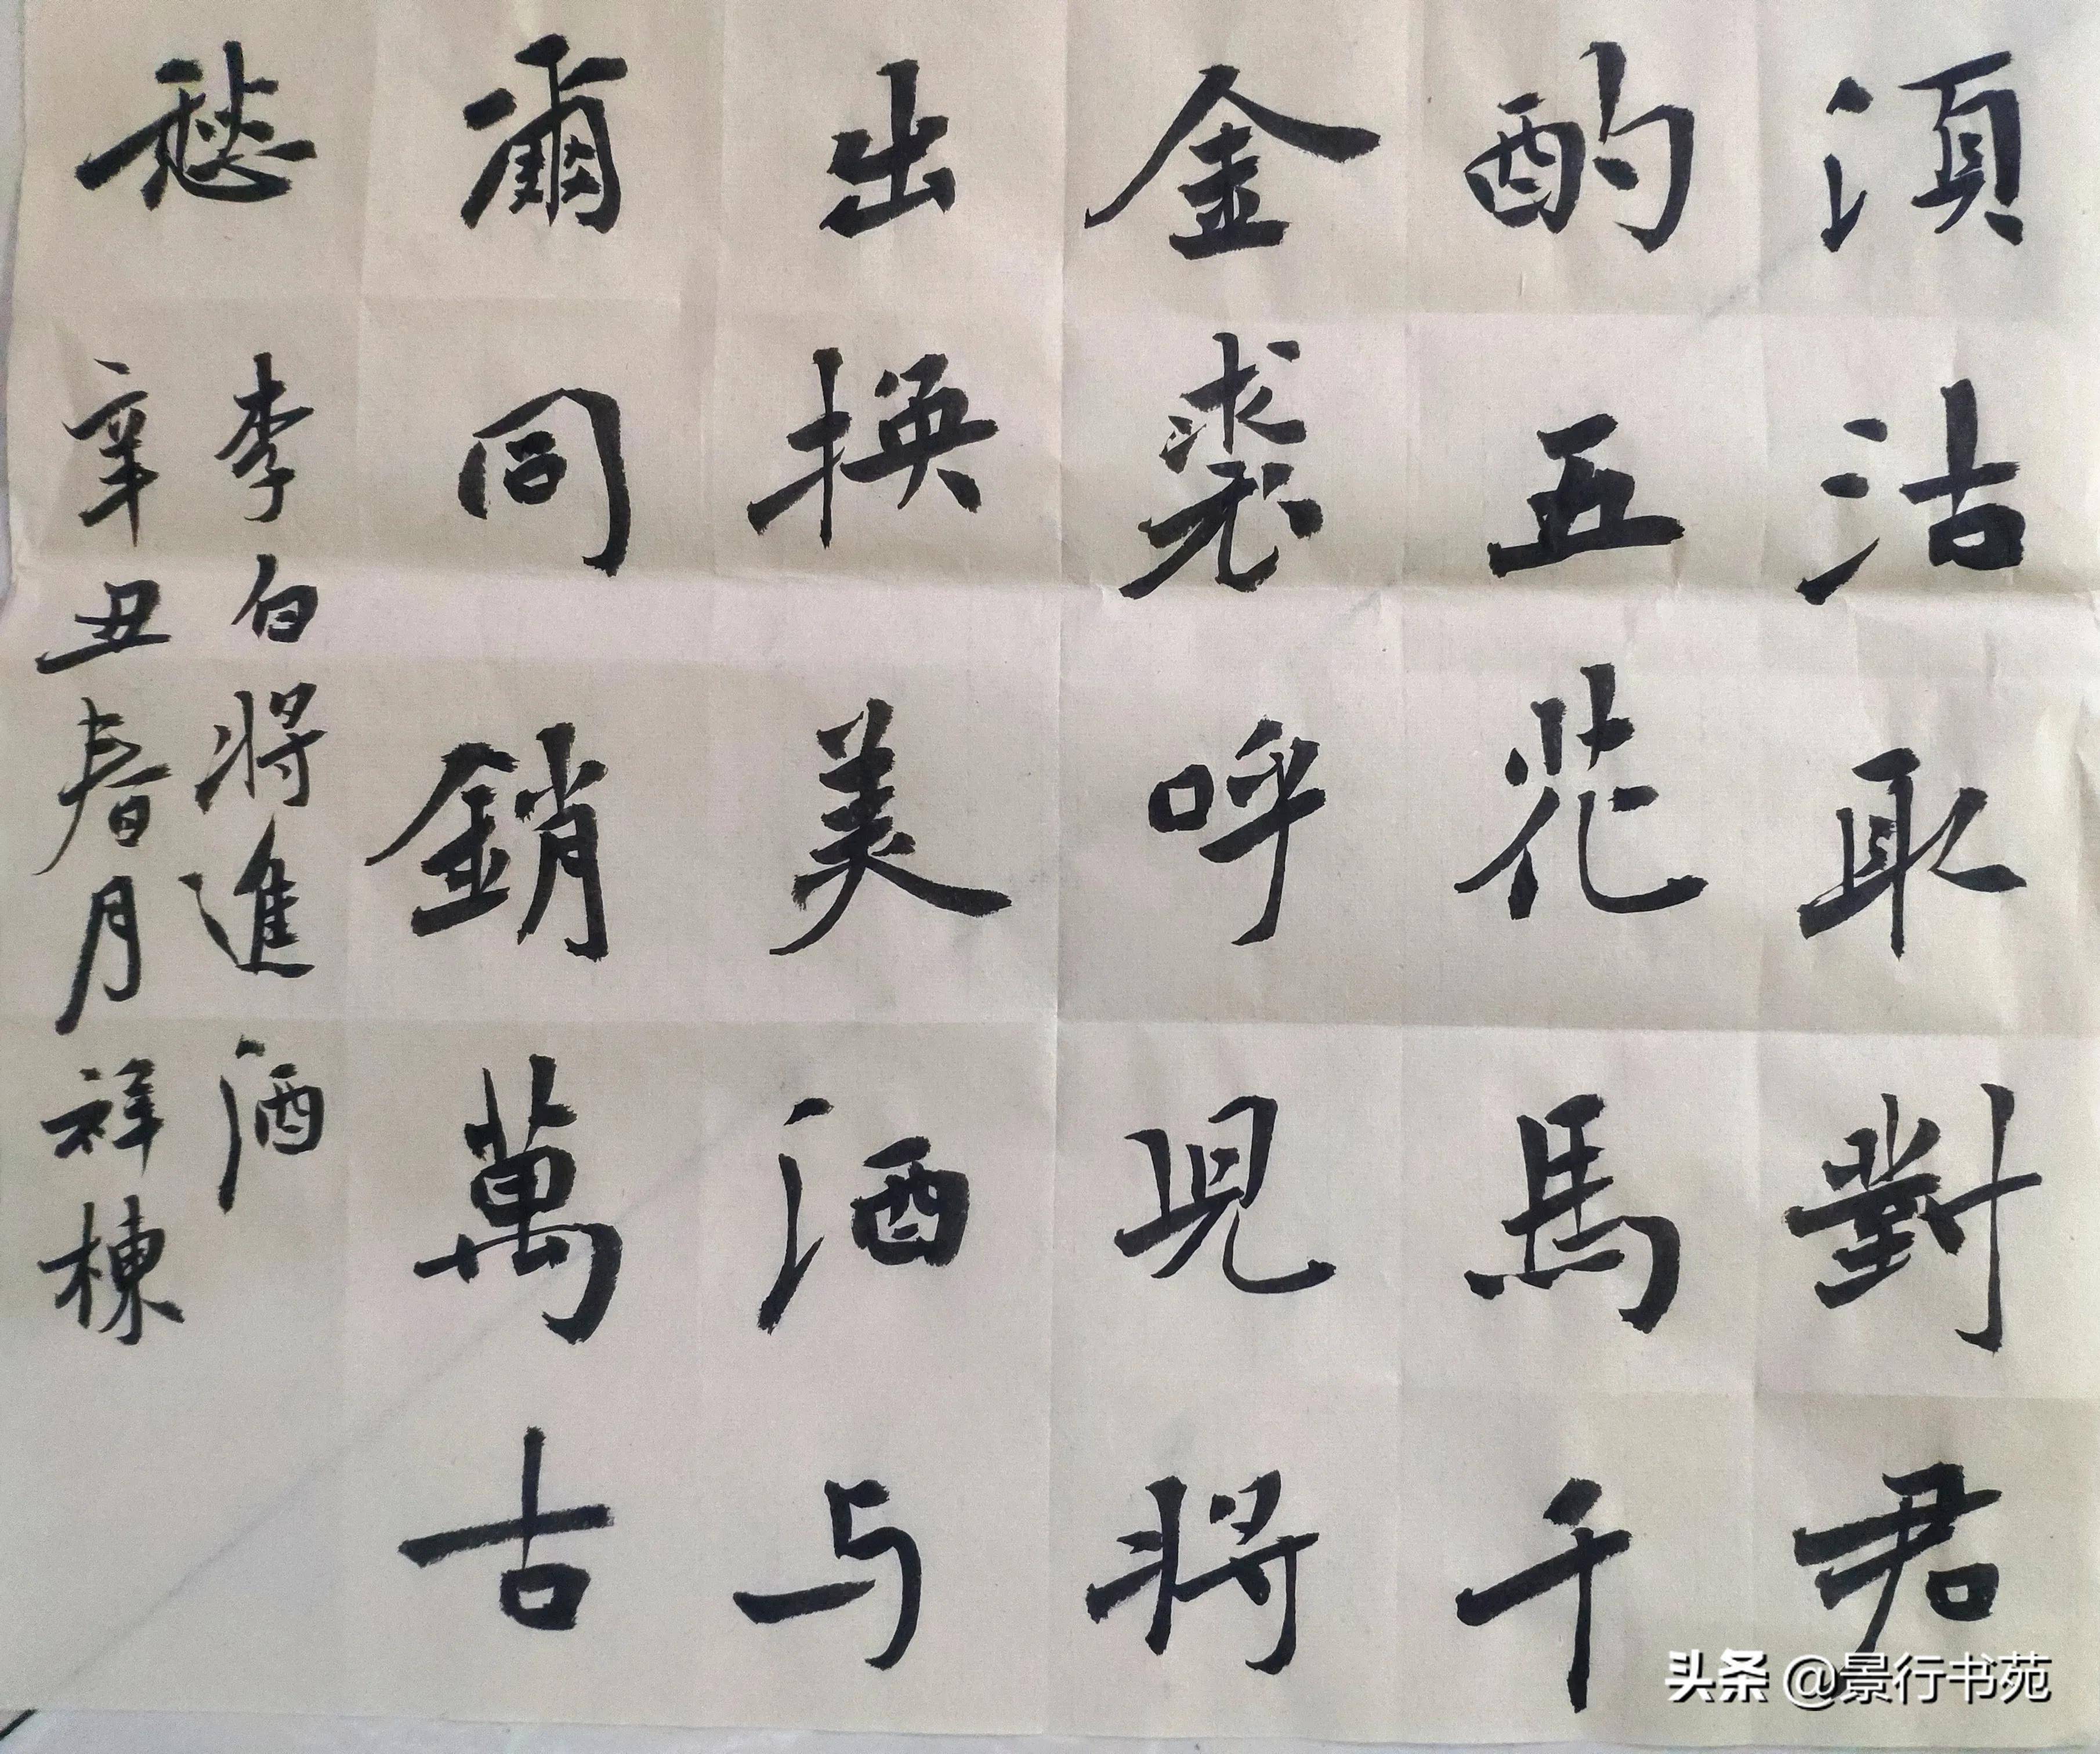 須沽取對君
酌五花馬千
金裘呼兒將
出換美酒与
爾同銷萬古
愁
李白將進酒
辛丑春月祥棟
头条 @景行书苑